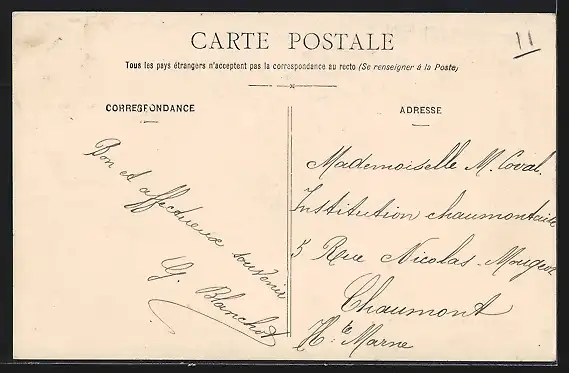 11
CARTE POSTALE
Tous les pays étrangers n'acceptent pas la correspondance au recto (Se renseigner à la Poste)
CORRESPONDANCE
Bon et affectueux souvenir
G. Blanchot
ADRESSE
Mademoiselle M. Coval.
Institution chaumontaise
5 Rue Nicolas-Mougeot
Chaumont
Hte Marne